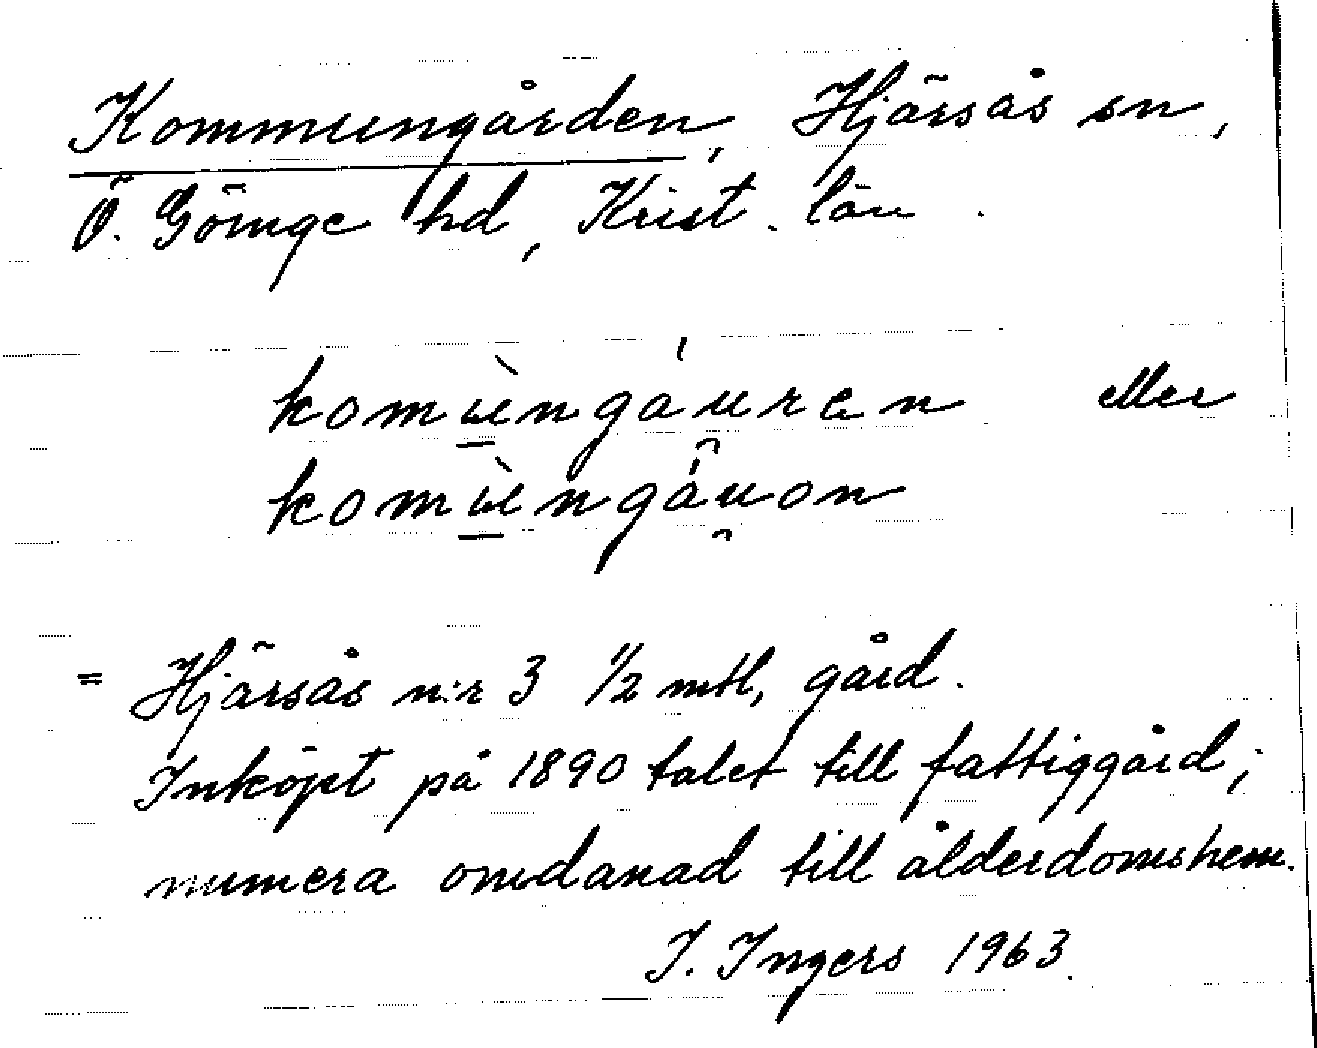 Kommungården, Hjärsås sn,
Ö. Göinge hd, Krist. län.
komùngáuren eller
komùngáuon
= Hjärsås n:r 3 1/2 mtl, gård.
Inköpt på 1890 talet till fattiggård;
numera omdanad till ålderdomshem.
I. Ingers 1963.